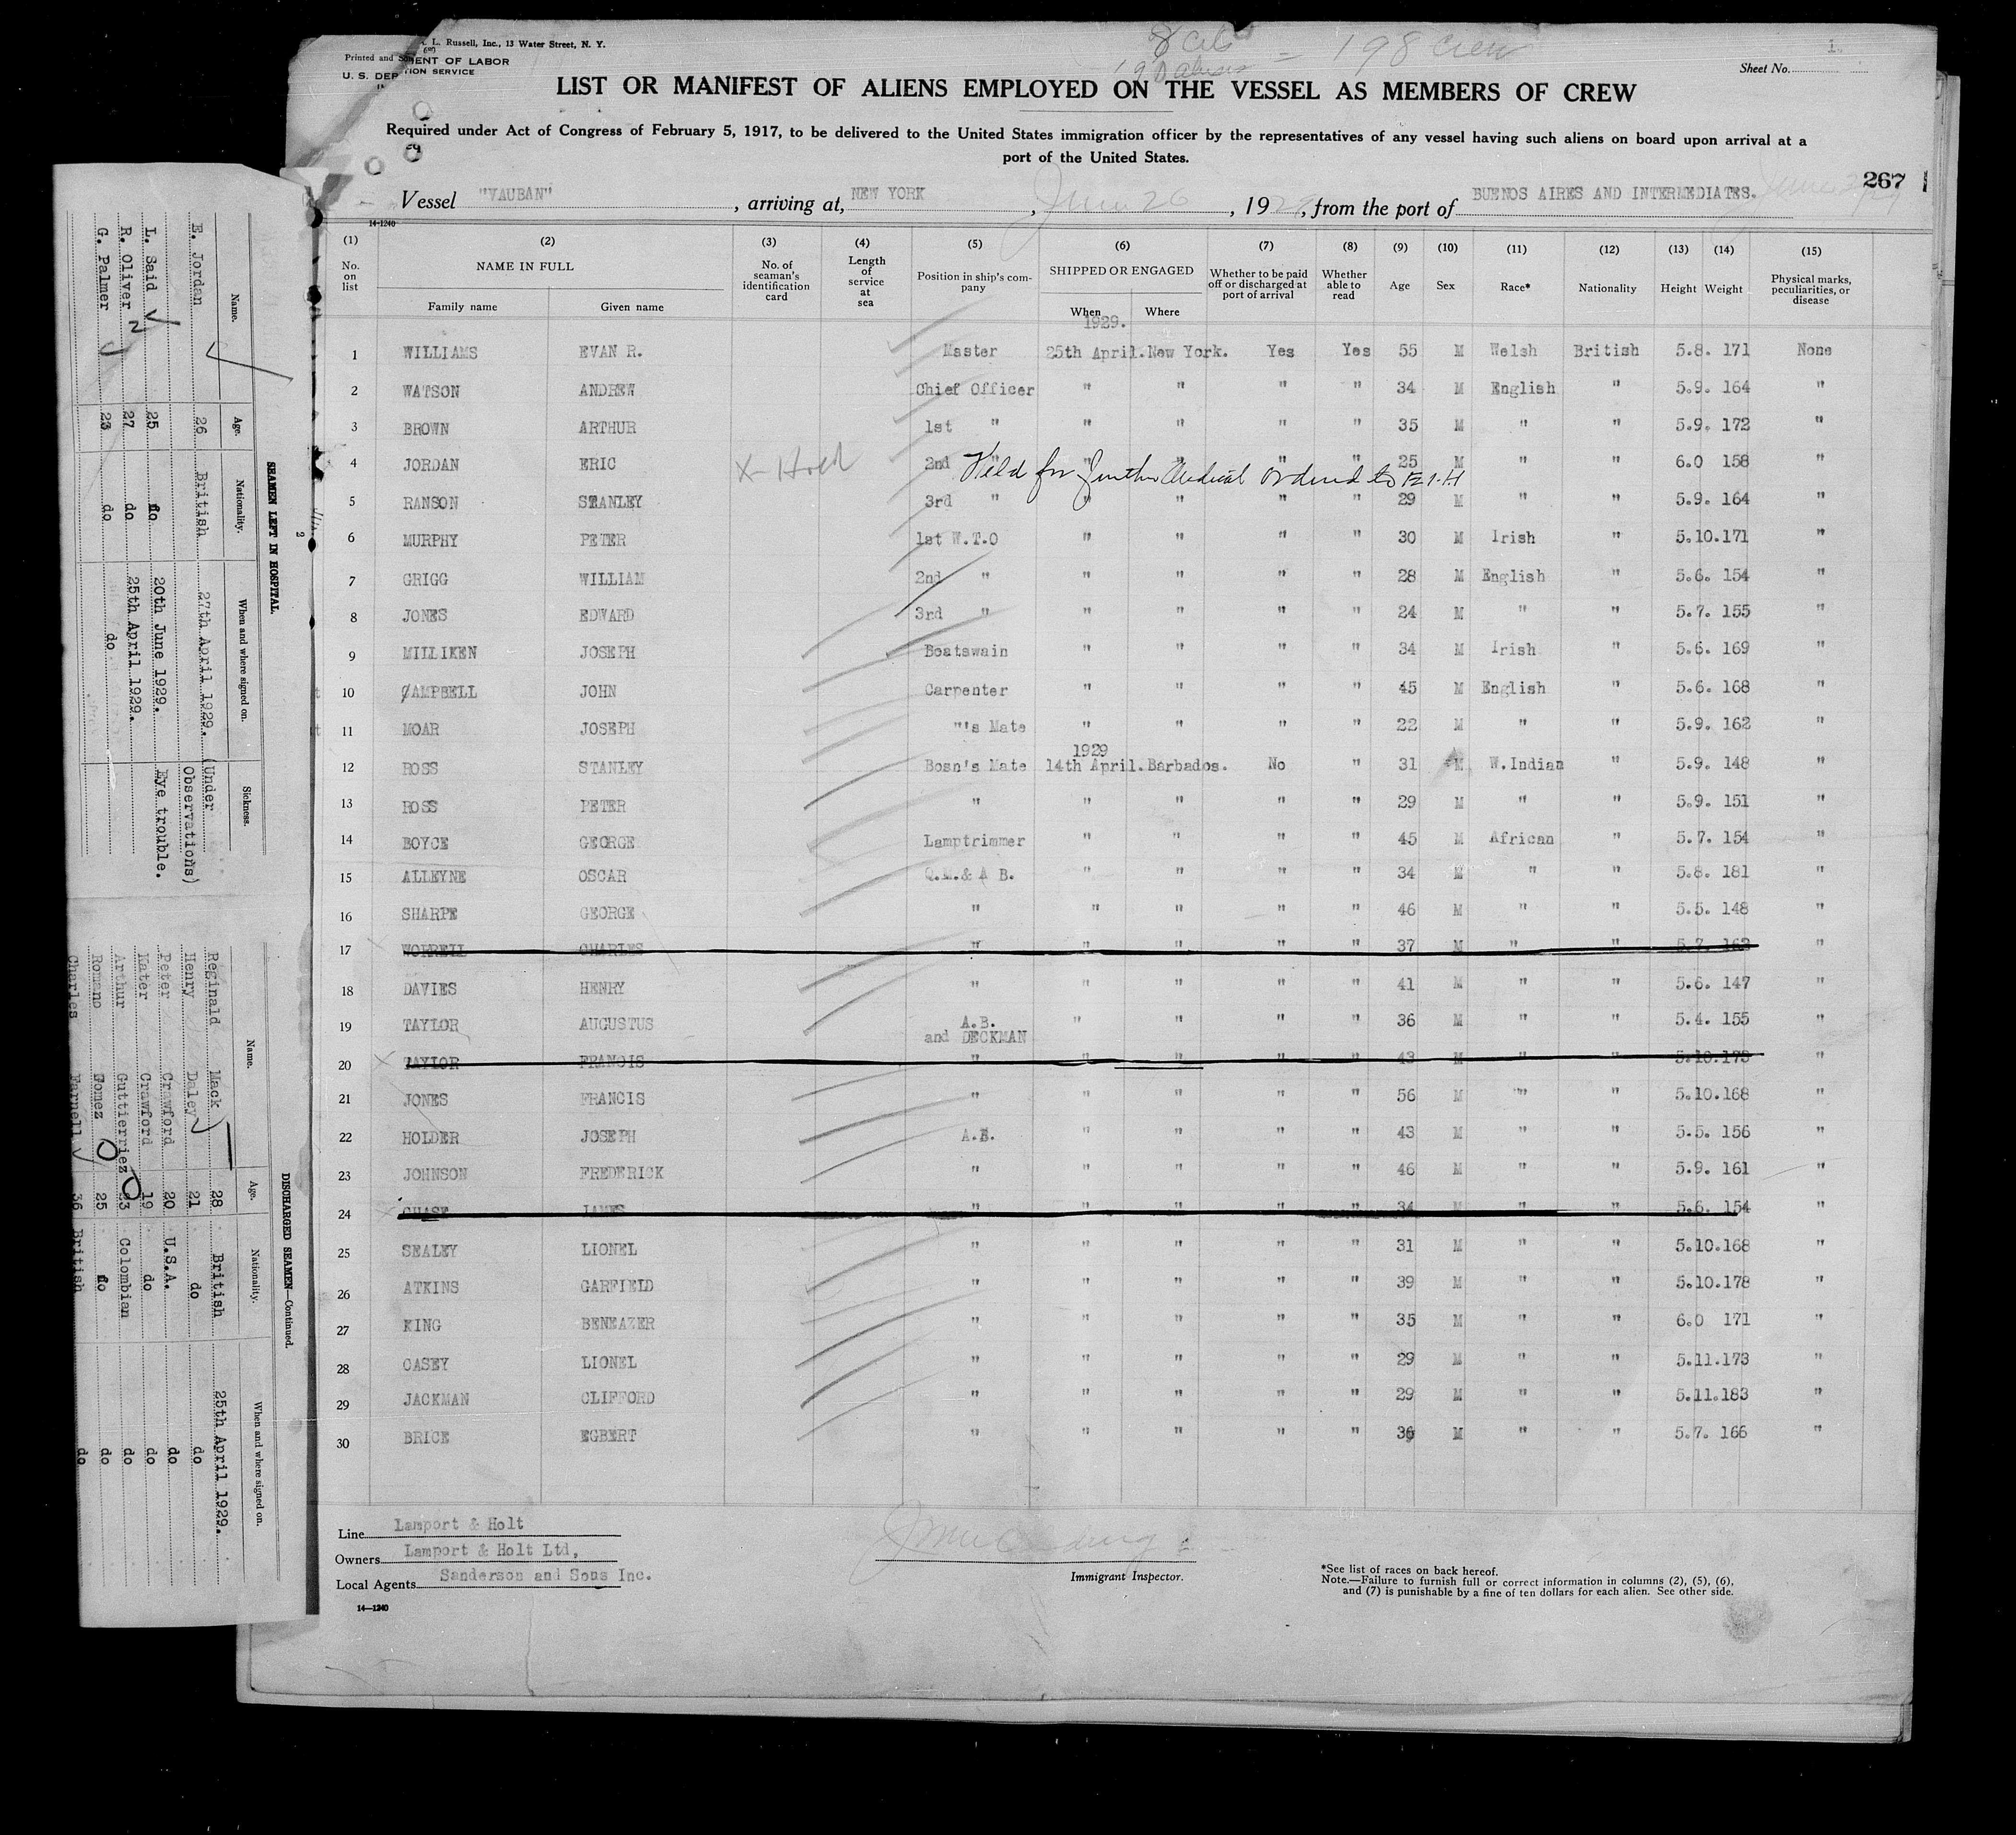 L. Russell, Inc., 13 Water Street, N. Y.
Printed and
MENT OF LABOR
U. S. DEP
TION SERVICE
8 Cit
190 aliens = 198 Crew
Sheet No. 1.
LIST OR MANIFEST OF ALIENS EMPLOYED ON THE VESSEL AS MEMBERS OF CREW
Required under Act of Congress of February 5, 1917, to be delivered to the United States immigration officer by the representatives of any vessel having such aliens on board upon arrival at a
port of the United States.
267
Vessel "VAUBAN", arriving at, NEW YORK, June 26, 1929, from the port of BUENOS AIRES AND INTERMEDIATES.
14-1240
(1) (2) (3) (4) (5) (6) (7) (8) (9) (10) (11) (12) (13) (14) (15)
No. on list
NAME IN FULL
Family name Given name
No. of seaman's identification card
Length of service at sea
Position in ship's company
SHIPPED OR ENGAGED
When Where
Whether to be paid off or discharged at port of arrival
Whether able to read
Age
Sex
Race*
Nationality
Height
Weight
Physical marks, peculiarities, or disease
1929.
1 WILLIAMS EVAN R. Master 25th April. New York. Yes Yes 55 M Welsh British 5.8. 171 None
2 WATSON ANDREW Chief Officer " " " " 34 M English " 5.9. 164 "
3 BROWN ARTHUR 1st " " " " " 35 M " " 5.9. 172 "
4 JORDAN ERIC X- Hold 2nd " " " " " 25 M " " 6.0 158 "
Held for further Medical ordered to E.I.H
5 RANSON STANLEY 3rd " " " " " 29 M " " 5.9. 164 "
6 MURPHY PETER 1st W.T.O " " " " 30 M Irish " 5.10. 171 "
7 GRIGG WILLIAM 2nd " " " " " 28 M English " 5.6. 154 "
8 JONES EDWARD 3rd " " " " " 24 M " " 5.7. 155 "
9 MILLIKEN JOSEPH Boatswain " " " " 34 M Irish " 5.6. 169 "
10 CAMPBELL JOHN Carpenter " " " " 45 M English " 5.6. 168 "
11 MOAR JOSEPH "'s Mate " " " " 22 M " " 5.9. 162 "
1929
12 ROSS STANLEY Bosn's Mate 14th April. Barbados. No " 31 M W.Indian " 5.9. 148 "
13 ROSS PETER " " " " " 29 M " " 5.9. 151 "
14 BOYCE GEORGE Lamptrimmer " " " " 45 M African " 5.7. 154 "
15 ALLEYNE OSCAR Q.M.& A B. " " " " 34 M " " 5.8. 181 "
16 SHARPE GEORGE " " " " " 46 M " " 5.5. 148 "
17 WORRELL CHARLES " " " " " 37 M " " 5.7. 162 "
18 DAVIES HENRY " " " " " 41 M " " 5.6. 147 "
19 TAYLOR AUGUSTUS A.B. and DECKMAN " " " " 36 M " " 5.4. 155 "
20 TAYLOR FRANCIS " " " " " 43 M " " 5.10. 173 "
21 JONES FRANCIS " " " " " 56 M " " 5.10. 168 "
22 HOLDER JOSEPH A.B. " " " " 43 M " " 5.5. 156 "
23 JOHNSON FREDERICK " " " " " 46 M " " 5.9. 161 "
24 CHASE JAMES " " " " " 34 M " " 5.6. 154 "
25 SEALEY LIONEL " " " " " 31 M " " 5.10. 168 "
26 ATKINS GARFIELD " " " " " 39 M " " 5.10. 178 "
27 KING BENEAZER " " " " " 35 M " " 6.0 171 "
28 CASEY LIONEL " " " " " 29 M " " 5.11. 173 "
29 JACKMAN CLIFFORD " " " " " 29 M " " 5.11. 183 "
30 BRICE EGBERT " " " " " 36 M " " 5.7. 166 "
Line Lamport & Holt
Owners Lamport & Holt Ltd,
Local Agents Sanderson and Sons Inc.
14—1240
Immigrant Inspector.
*See list of races on back hereof.
Note.—Failure to furnish full or correct information in columns (2), (5), (6),
and (7) is punishable by a fine of ten dollars for each alien. See other side.
2
SEAMEN LEFT IN HOSPITAL.
Name. Age. Nationality. When and where signed on. Sickness.
E. Jordan 26 British 27th April 1929. (Under Observations)
L. Said 25 do 20th June 1929. Eye trouble.
R. Oliver 27 do 25th April 1929.
G. Palmer 23 do do
DISCHARGED SEAMEN—Continued.
Name. Age. Nationality. When and where signed on.
Reginald Mack 28 British 25th April 1929.
Henry Daley 21 do do
Peter Crawford 20 U.S.A. do
Kater Crawford 19 do do
Arthur Guttierriez 33 Colombian do
Romano Gomez 25 do do
Charles Farnell 36 British do